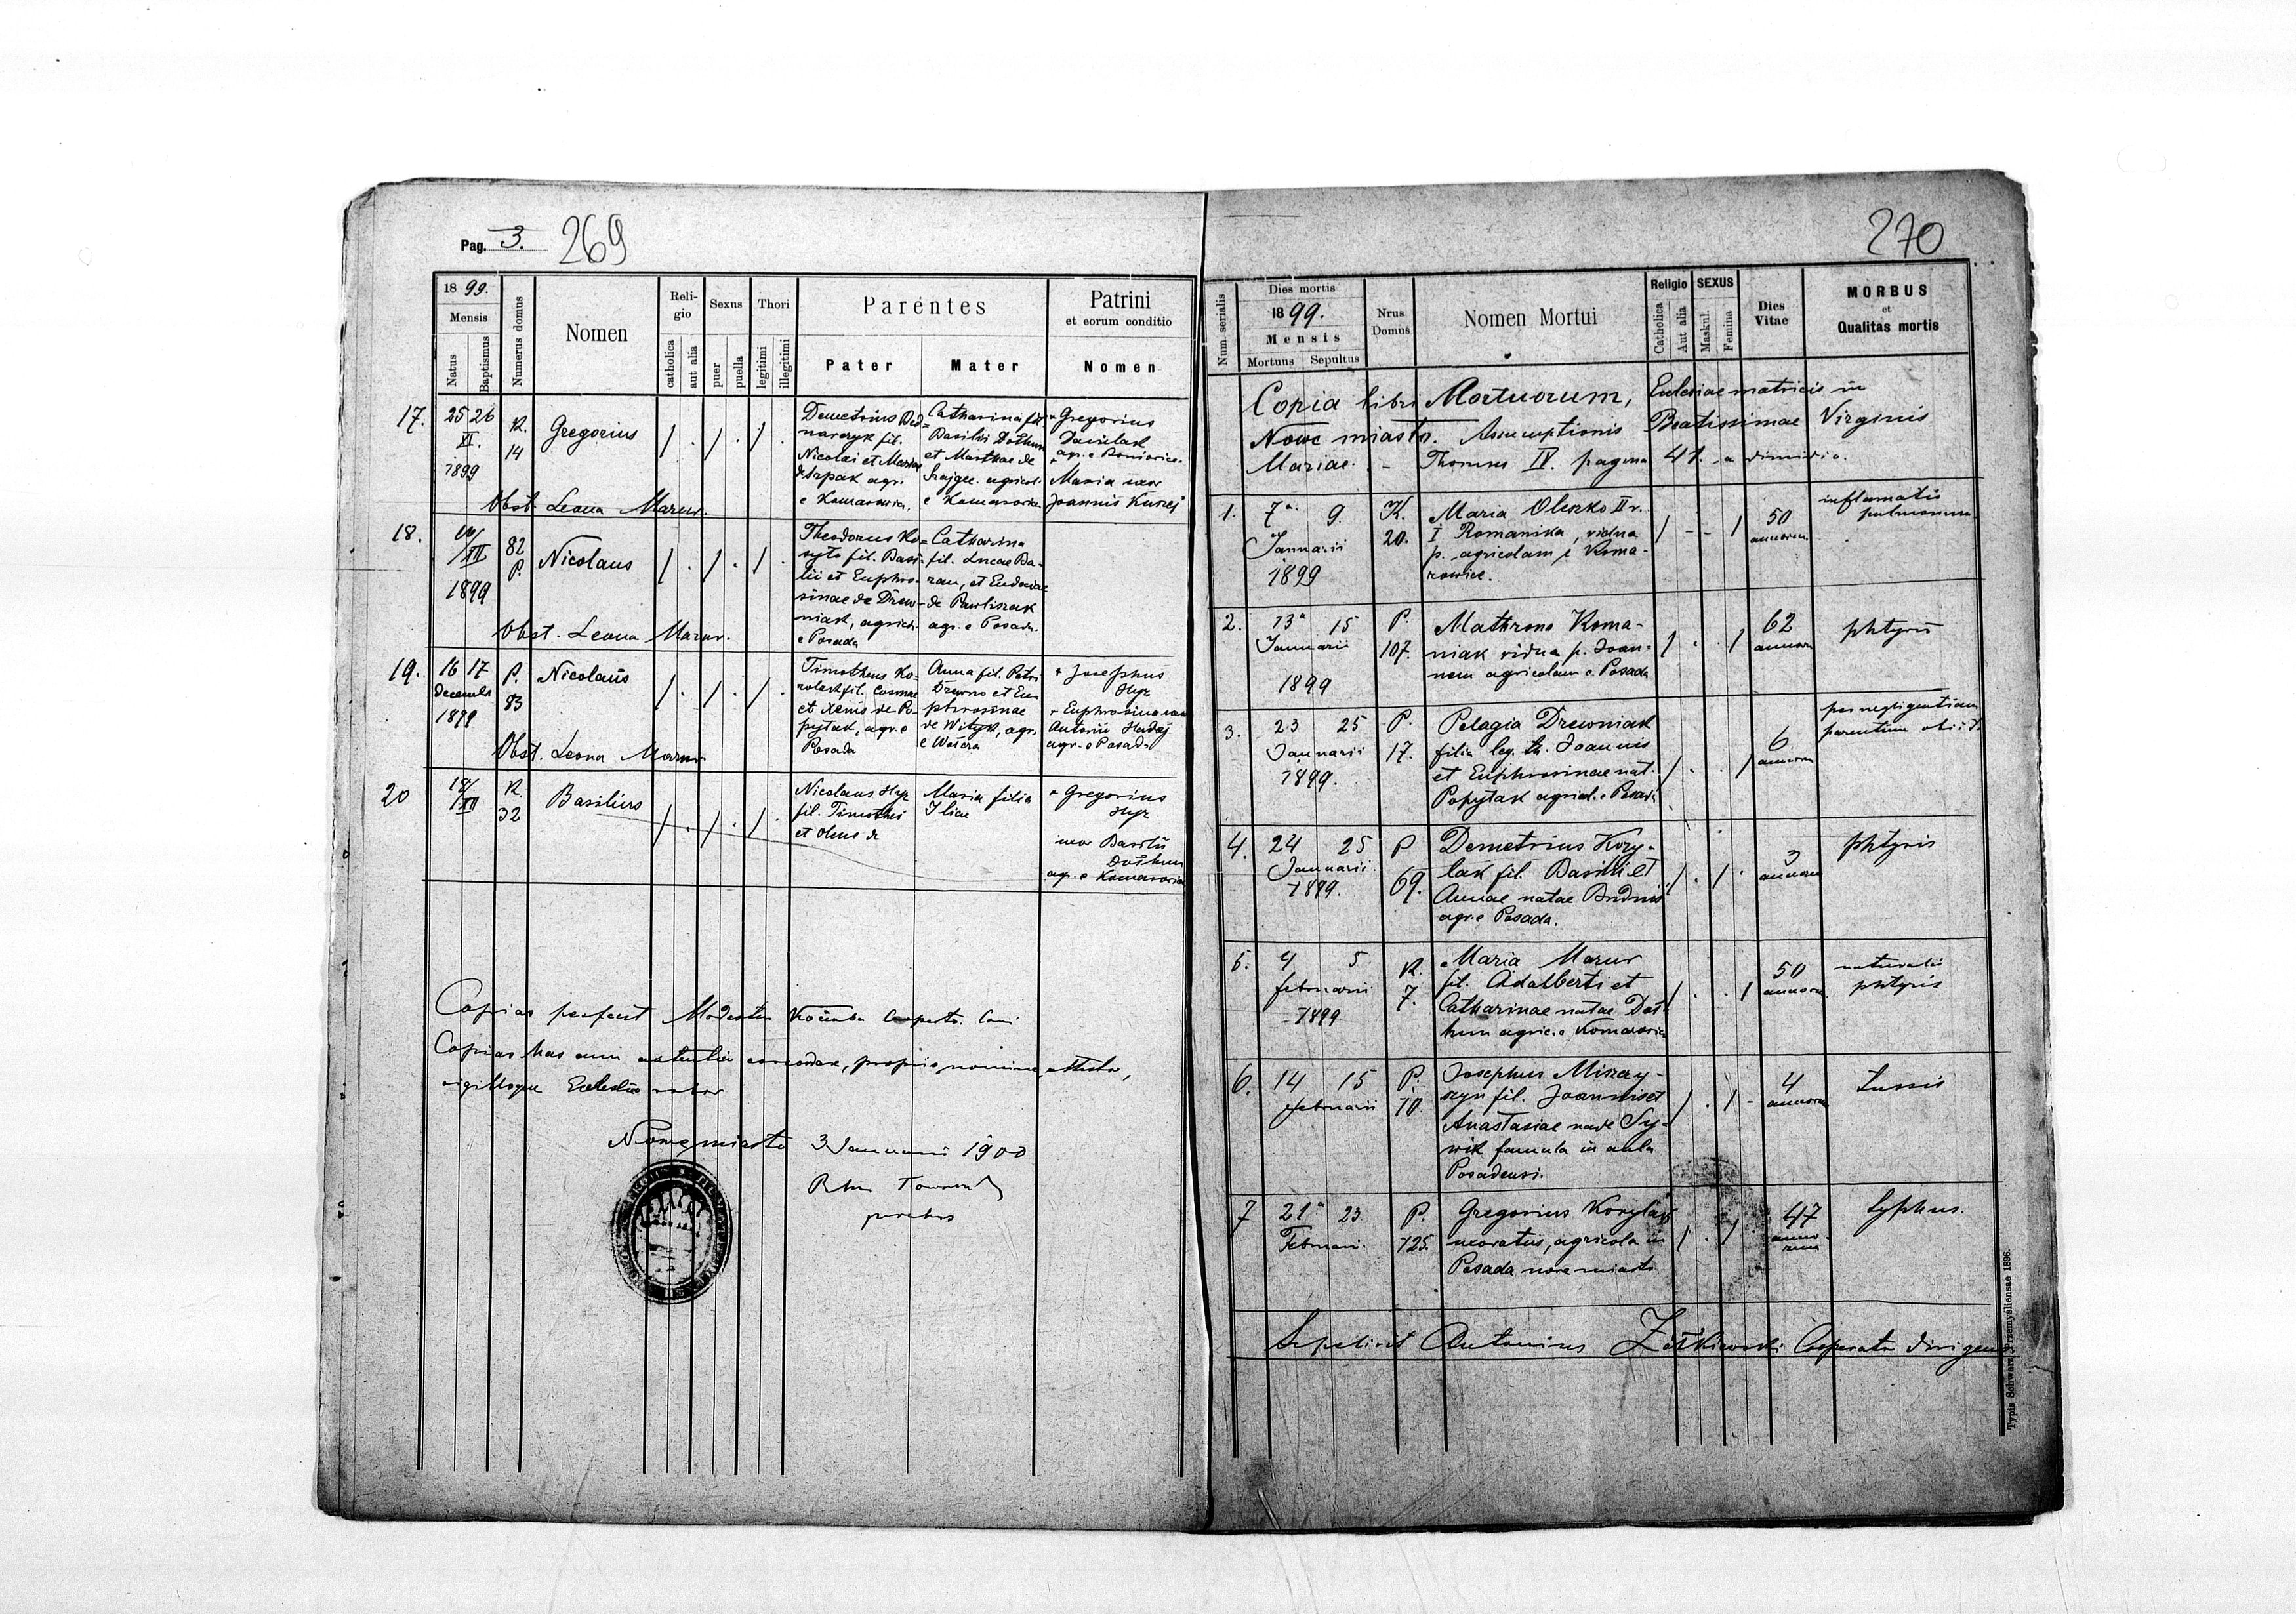 Pag. 3. 269
18 99.
Mensis
Natus
Baptismus
Numerus domus
Nomen
Reli-
gio
catholica
aut alia
Sexus
puer
puella
Thori
legitimi
illegitimi
Parentes
Pater
Mater
Patrini
et eorum conditio
Nomen
17.
25 26
XI.
1899
K.
14
Gregorius
Demetrius Bed=
narczyk fil.
Nicolai et Mariae
de Szpak agr.
e Komarowice.
Catharina fil.
Basilii Dothun
et Marthae de
agricol.
e Komarowice
Gregorius
Danilak
agr. e Komarowice.
Maria uxor
Joannis Kuszej
Obst. Leona Mazur.
18.
XII
1899
82
P.
Nicolaus
Theodorus Ko=
syto fil. Basi-
lii et Euphro-
sinae de Drew-
niak, agricol.
e Posada
Catharina
fil. Lucae Ba-
ran, et Eudoxiae
de Pawliszak
agr. e Posada.
Obst. Leona Mazur.
19.
16 17
Decembr
1899
P.
83
Nicolaus
Timotheus Ko=
rolak fil. Cosmae
et Xeniae de Po-
pytak, agr. e
Posada
Anna fil. Petri
Drewno et Eu-
phrosinae
de Wityk, agr.
e
Josephus
Hyz
Euphrosina uxor
Antonii Hadaj
agr. e Posada
Obst. Leona Mazur.
20
18/
XII
K.
32
Basilius
Nicolaus Hyz
fil. Timothei
et Olenae de
Maria filia
Iliae
Gregorius
Hyz
uxor Basilii
Dothun
agr. e Komarowice
Copias perfecit Modestus Kociuba Cooperator.
Copias has cum autentico concordare, propria nomine attestor,
sigilloque Ecclesiae roboro
Nowemiasto 3 Januarii 1900
parochus
270
Num. serialis
Dies mortis
18 99.
Mensis
Mortuus Sepultus
Nrus
Domus
Nomen Mortui
Religio
Catholica
Aut alia
SEXUS
Maskul.
Femina
Dies
Vitae
MORBUS
et
Qualitas mortis
Copia libri Mortuorum, Ecclesiae matricis in
Nowe miasto. Assumptionis Beatissimae Virginis
Mariae. - Thomus IV. pagina 41. a dimidio.
1.
7a 9.
Januarii
1899
K.
20.
Maria Oleszko II v.
I Romanska, vidua
p. agricolam e Koma-
rowice.
50
annorum
inflamatio
pulmonum
2.
13a 15
Januarii
1899
P.
107.
Mathrona Roma-
niak vidua p. Joan-
nem agricolam e Posada
62
annorum
phtysis
3.
23 25
Januarii
1899.
P.
17.
Pelagia Drewniak
filia leg. th. Joannis
et Euphrosinae nat.
Popytak agricol. e Posada
6
annorum
per negligentiam
parentum obiit.
4.
24 25
Januarii
1899.
P
69.
Demetrius Kory-
lak fil. Basilii et
Annae natae Budnik
agr. e Posada.
3
annorum
phtysis
5.
4 5
februarii
1899
K.
7.
Maria Mazur
fil. Adalberti et
Catharinae natae Dot-
hun agric. e Komarowice
50
annorum
naturalis
phtysis
6.
14 15
februarii
P.
70.
Josephus Miszczy-
szyn fil. Joannis et
Anastasiae natae Sy-
wik famula in aula
Posadensi.
4
annorum
tussis
7
21a 23
Februarii.
P.
125.
Gregorius Korylak
uxoratus, agricola in
Posada novemiasto
47
anno-
rum
Typhus.
Sepelivit Antonius Cooperator dirigens
Typis Schwarz Przemyśliensae 1896.